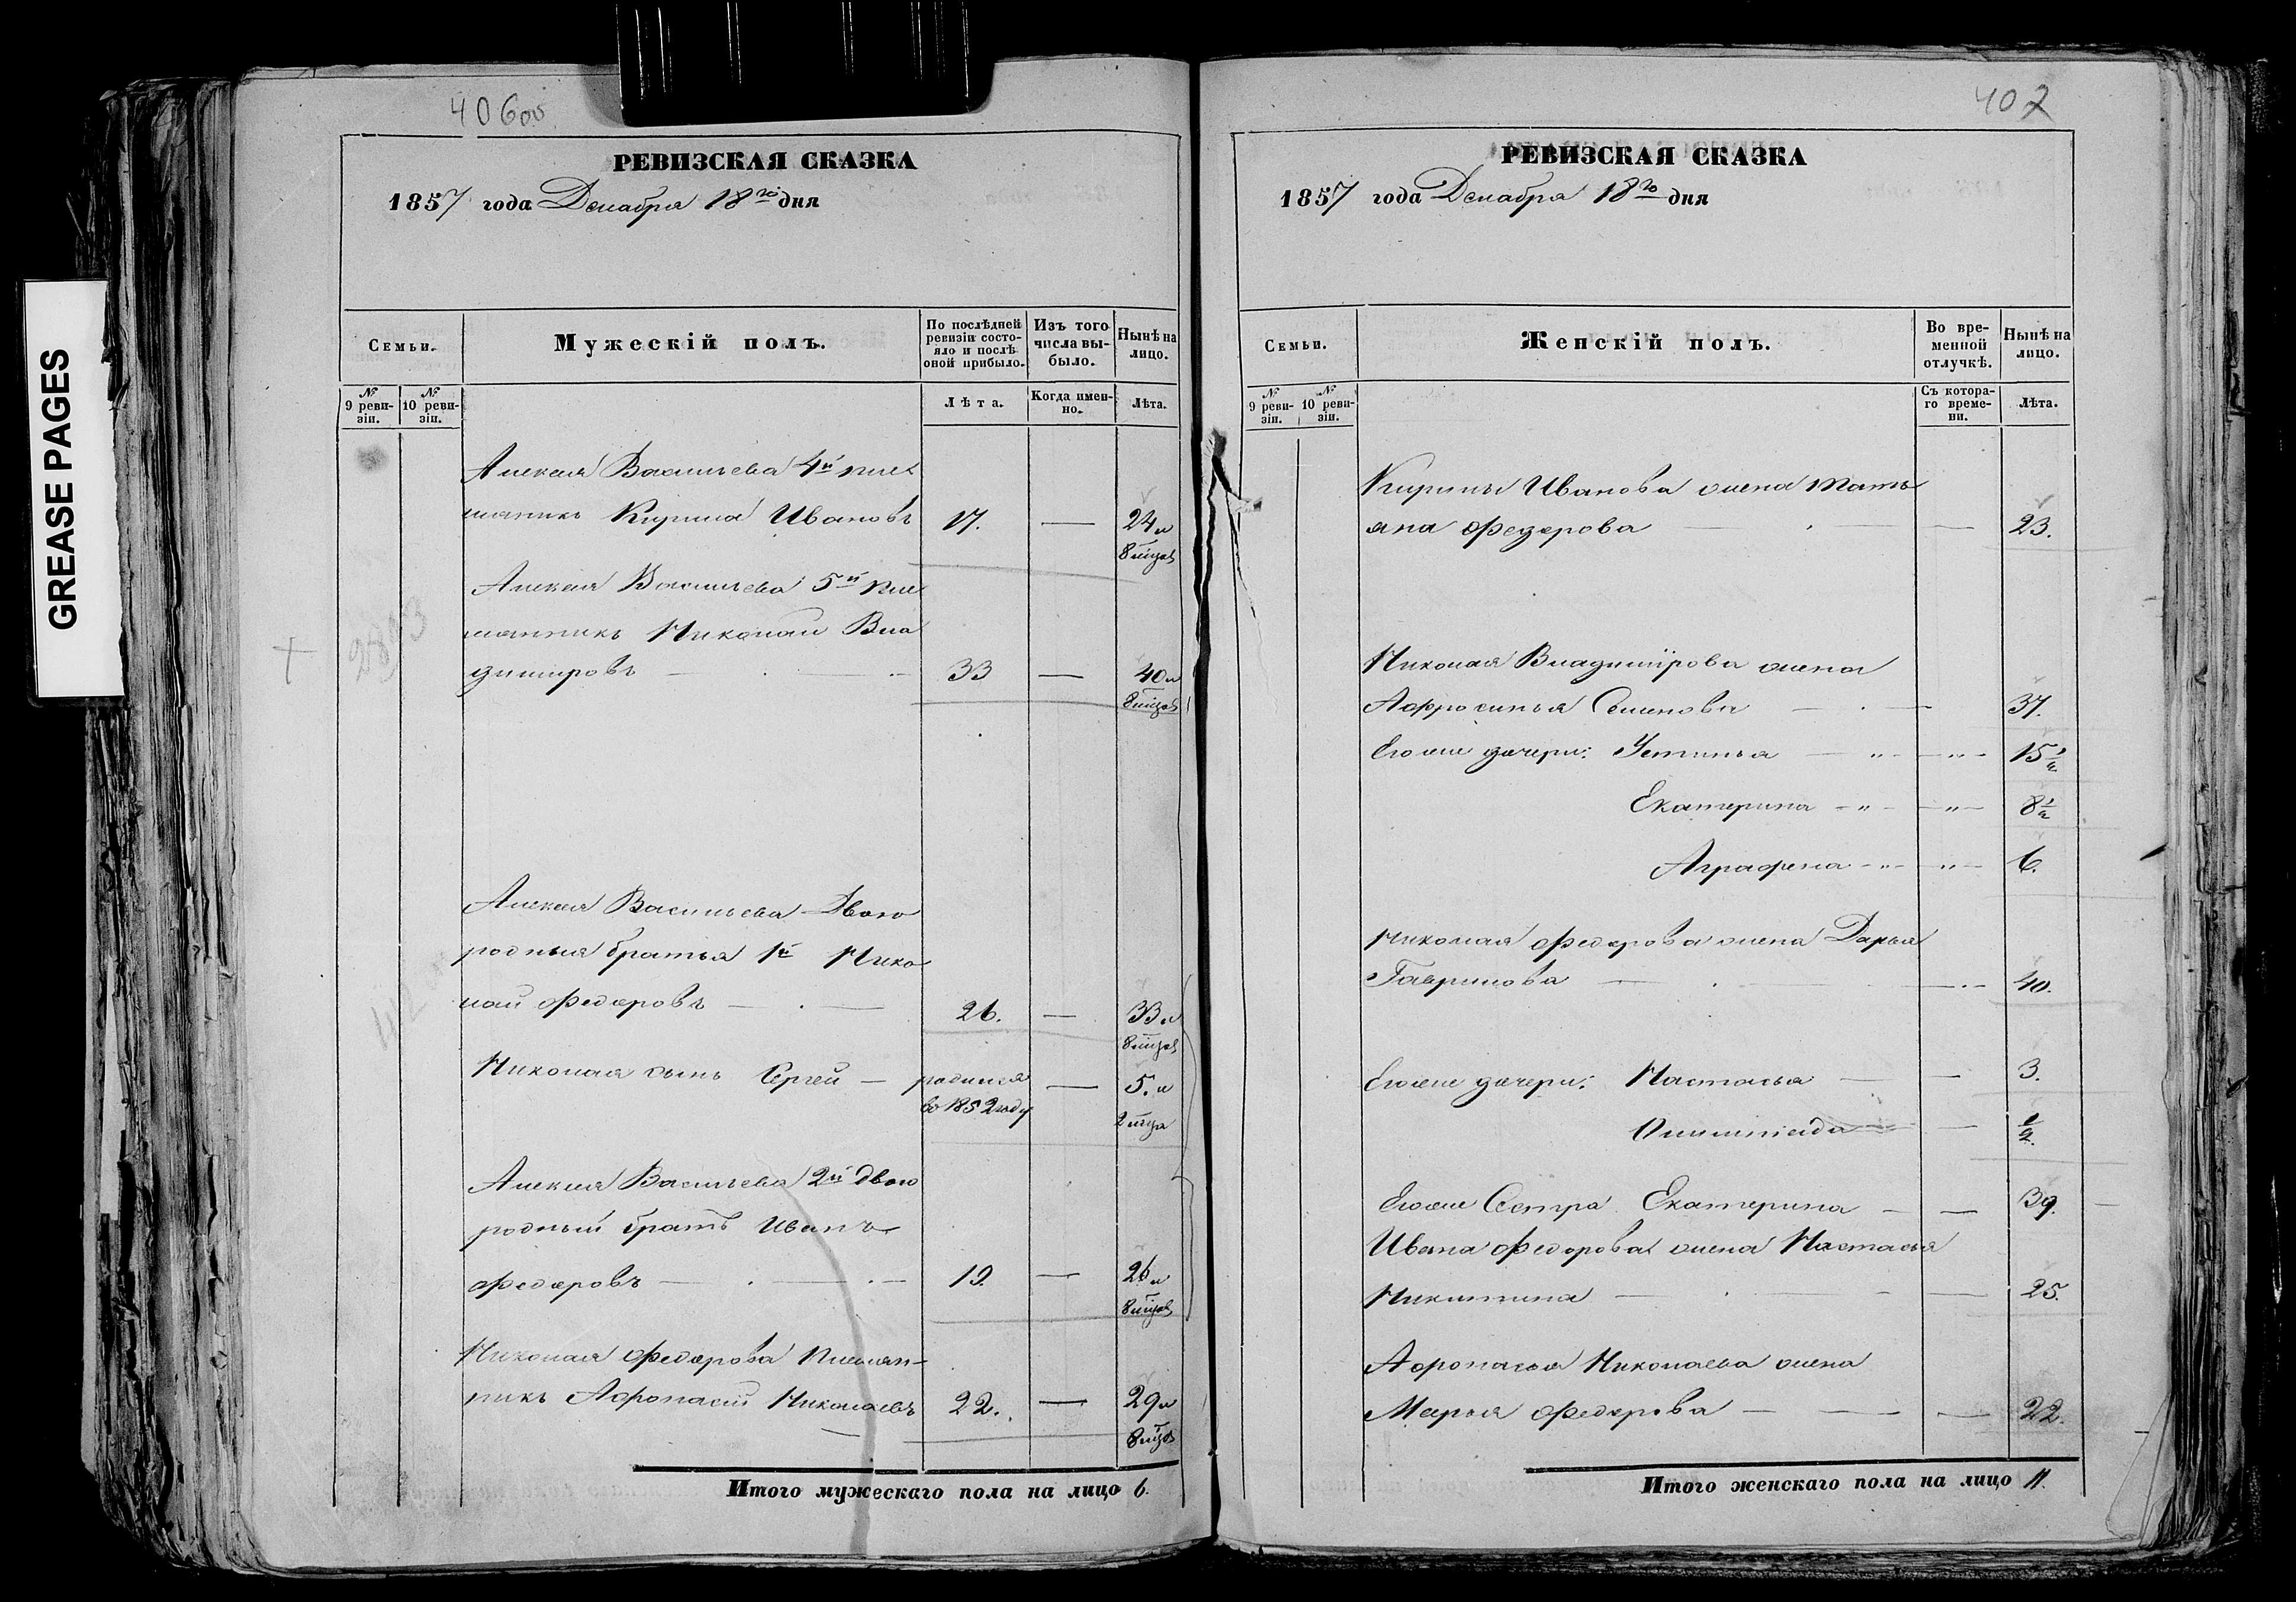 GREASE PAGES
406об
РЕВИЗСКАЯ СКАЗКА
1857 года Декабря 18го дня
Семьи.
Мужескій полъ.
По послѣдней ревизіи состояло и послѣ оной прибыло.
Изъ того числа выбыло.
Нынѣ на лицо.
№ 9 ревизіи.
№ 10 ревизіи.
Лѣта.
Когда именно.
Лѣта.
Алексея Васильева 4й пле
мянникъ Кирила Ивановъ 17. — 24 и
8 мѣцов
Алексея Васильева 5й пле
мянникъ Николай Вла
димировъ — 33 — 40 и
8 мѣцов
Алексея Васильева Двою
родныя братья 1й Нико
лай Федоровъ — 26. — 33 и
8 мѣцов
Николая сынъ Сергей — родился — 5. и
во 1852 году 2 мѣца
Алексея Васильева 2й Двою
родный братъ Иванъ
Федоровъ — 19. — 26 и
8 мѣцов
Николая Федорова племян-
никъ Афонасій Николаевъ 22. — 29 и
8 мѣцов
Итого мужескаго пола на лицо 6.
407
РЕВИЗСКАЯ СКАЗКА
1857 года Декабря 18го дня
Семьи.
Женскій полъ.
Во временной отлучкѣ.
Нынѣ на лицо.
№ 9 ревизіи.
№ 10 ревизіи.
Съ котораго времени.
Лѣта.
Кирилы Иванова жена Тать
яна Федорова — — 23.
Николая Владимірова жена
Афросинья Семенова — — 37.
Его же дочери: Устинья — " — " — 15 1/2
Екатерина — " — " — 8 1/2
Аграфена — " — " — 6.
Николая Федорова жена Дарья
Гаврилова — — 40.
Его же дочери: Настасья — — 3.
Олимпіада — — 1/2.
Его же Сестра Екатерина — — 39.
Ивана Федорова жена Настасья
Никитина — — 25.
Афонасья Николаева жена
Марья Федорова — — 22.
Итого женскаго пола на лицо 11.